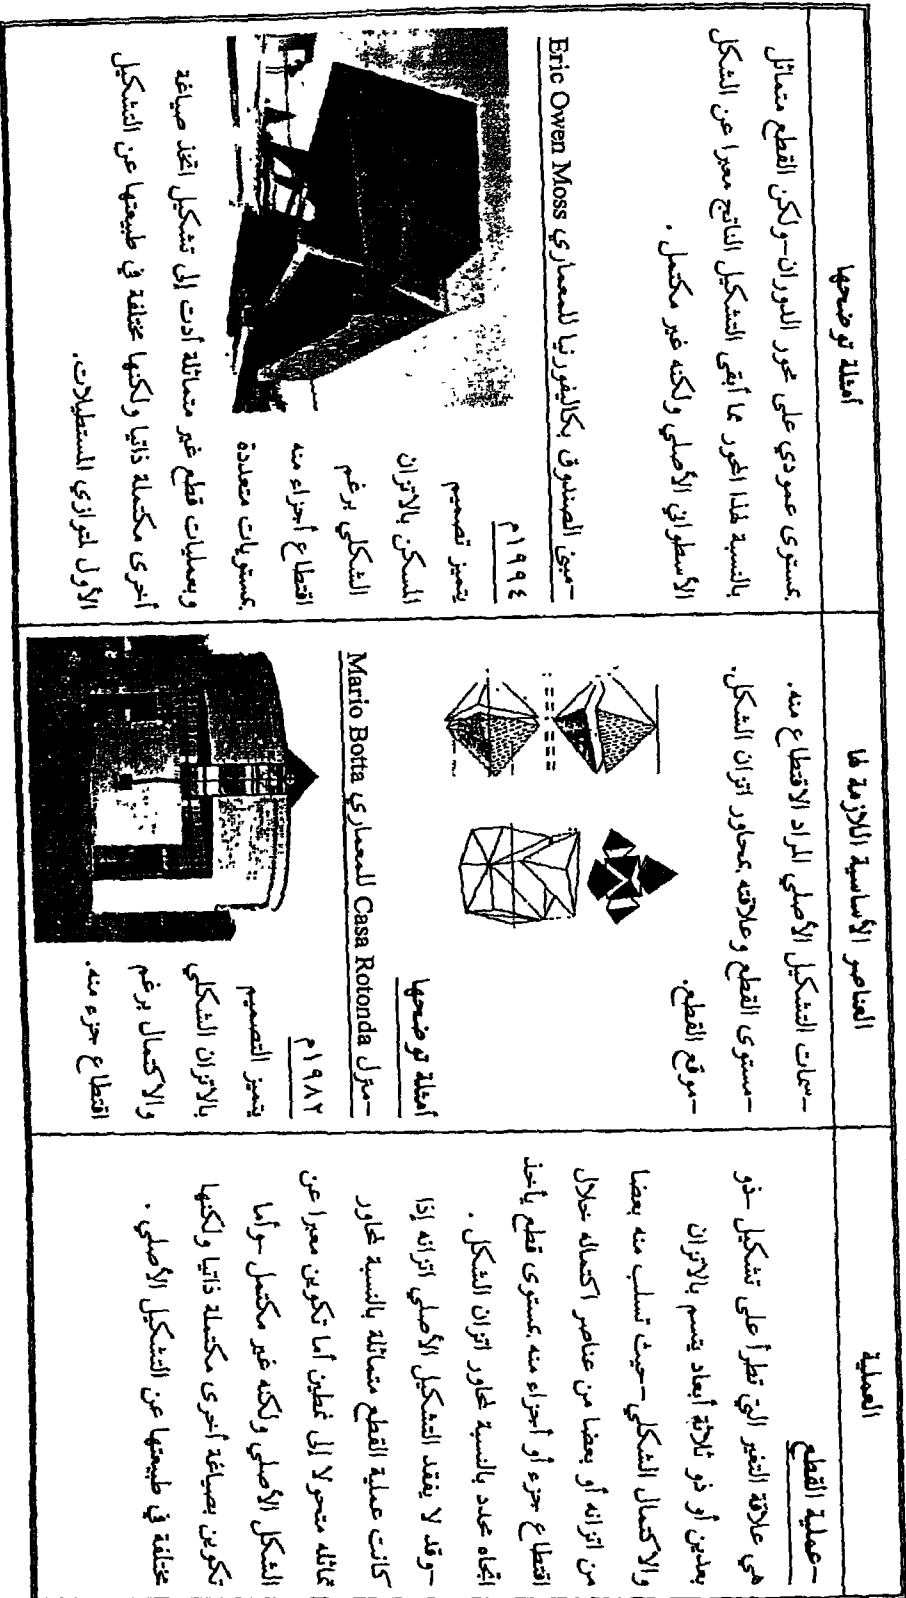 العملية
-عملية القطع
هي علاقة التغير التي تطرأ على تشكيل -ذو
بعدين أو ذو ثلاثة أبعاد يتسم بالاتزان
والاكتمال الشكلي-حيث تسلب منه بعضا
من اتزانه أو بعضا من عناصر اكتماله خلال
اقتطاع جزء أو أجزاء منه بمستوى قطع يأخذ
اتجاه محدد بالنسبة لمحاور اتزان الشكل .
-وقد لا يفقد التشكيل الأصلي اتزانه إذا
كانت عملية القطع متماثلة بالنسبة لمحاور
تماثله متحولا إلى نمطين أما تكوين معبرا عن
الشكل الأصلي ولكنه غير مكتمل -وأما
تكوين بصياغة أخرى مكتملة ذاتيا ولكنها
مختلفة في طبيعتها عن التشكيل الأصلي .
العناصر الأساسية اللازمة لها
-سمات التشكيل الأصلي المراد الاقتطاع منه.
-مستوى القطع وعلاقته بمحاور اتزان الشكل.
-موقع القطع.
أمثلة توضحها
-منزل Casa Rotonda للمعماري Mario Botta
١٩٨٢م
يتميز التصميم
بالاتزان الشكلي
والاكتمال برغم
اقتطاع جزء منه.
أمثلة توضحها
بمستوى عمودي على محور الدوران-ولكن القطع متماثل
بالنسبة لهذا المحور مما أبقى التشكيل الناتج معبرا عن الشكل
الأسطواني الأصلي ولكنه غير مكتمل .
-مبنى الصندوق بكاليفورنيا للمعماري Eric Owen Moss
١٩٩٤م
يتميز تصميم
المسكن بالاتزان
الشكلي برغم
اقتطاع أجزاء منه
بمستويات متعددة
وبعمليات قطع غير متماثلة أدت إلى تشكيل اتخذ صياغة
أخرى مكتملة ذاتيا ولكنها مختلفة في طبيعتها عن التشكيل
الأول لمتوازي المستطيلات.